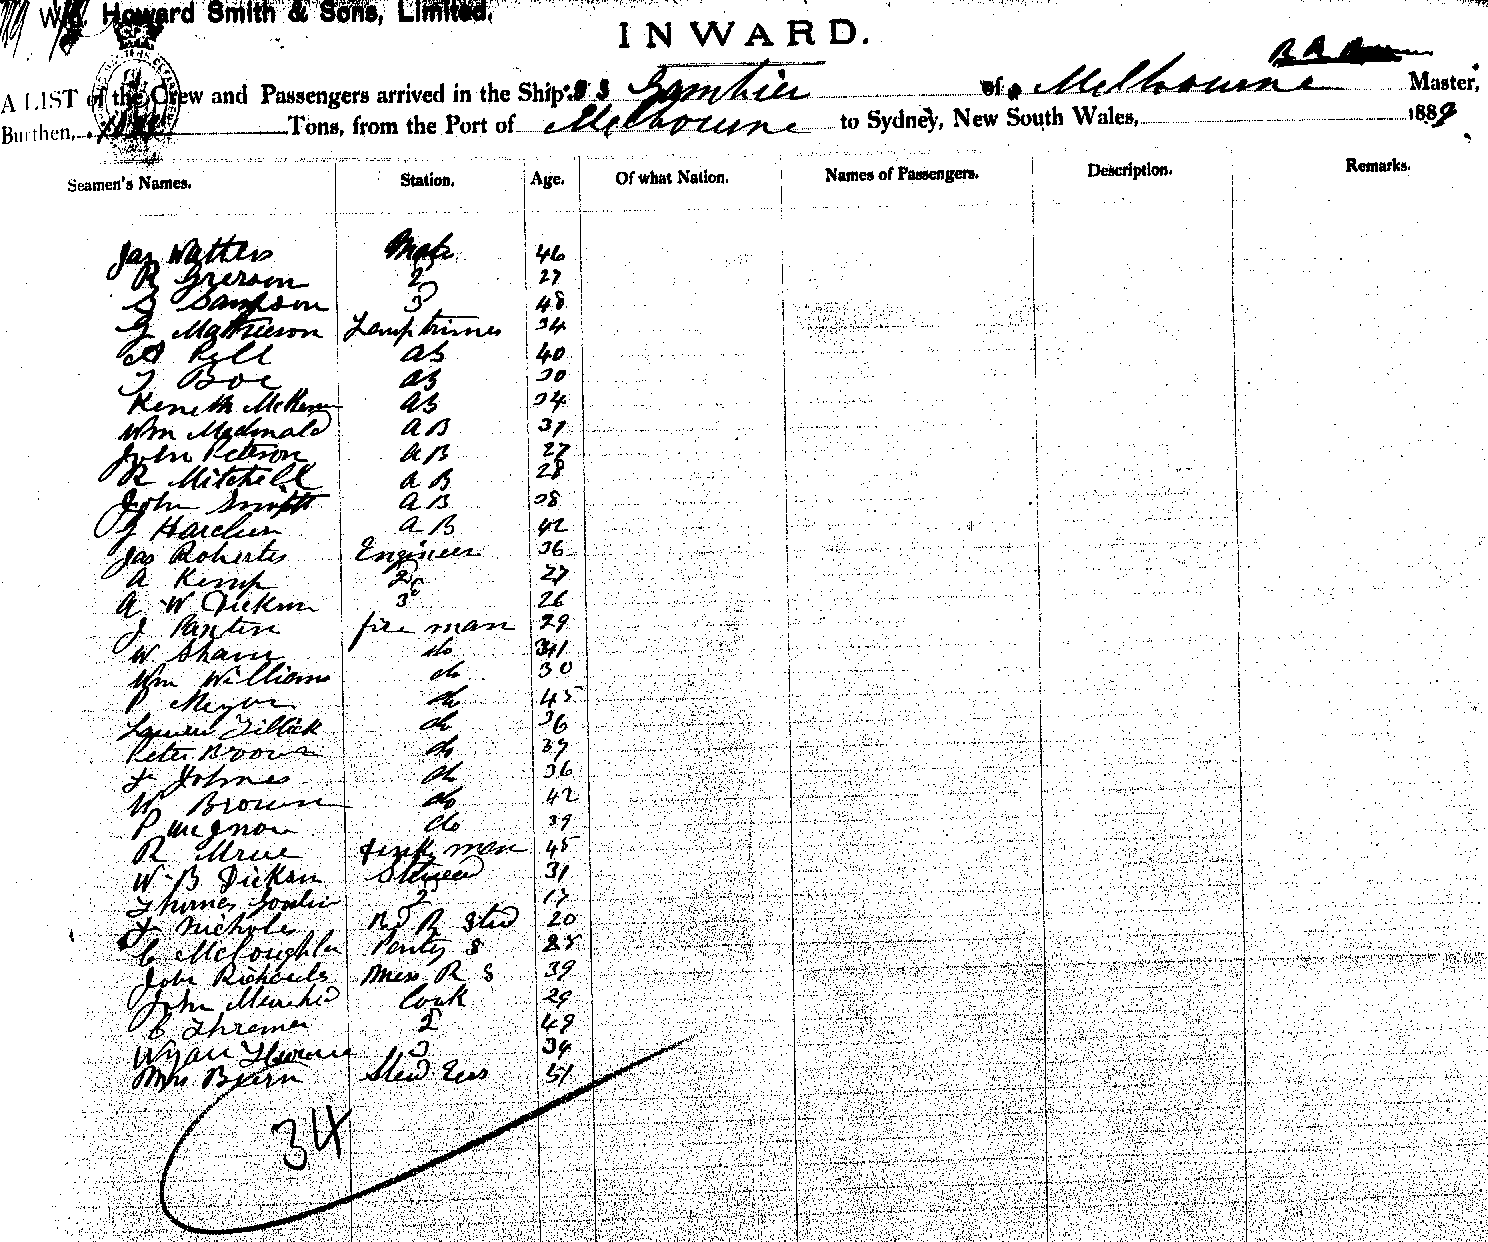 Wm. Howard Smith & Sons, Limited.
INWARD.
A LIST of the Crew and Passengers arrived in the Ship SS Gambier of Melbourne Master,
Burthen, Tons, from the Port of Melbourne to Sydney, New South Wales, 1889
Seamen's Names. Station. Age. Of what Nation. Names of Passengers. Description. Remarks.
Jas Watters Mate 46
R Grierson 2 27
S Sampson 3 48
G Mathieson Lamptrimer 34
A Rell AB 40
T Boe AB 30
Keneth McKenn AB 34
Wm Macdonald AB 37
John Peterson AB 27
R Mitchell AB 28
John Smith AB 38
J AB 42
Jas Roberts Engineer 36
A Kemp 2 27
A W Dickson 3 26
J fireman 29
W Shaw do
Wm Williams do 30
P Meyer do 45
do 36
Peter do 37
J Holmes do 36
W Brown do 42
P do 39
R man 45
W B Dickson Steward 31
Thomas 2 17
J Nicholes Std 20
C McLoughlin Pantry S 25
John Richards Mess R S 39
John Cook 29
C 2 49
3 34
Mrs Stewdess 51
34